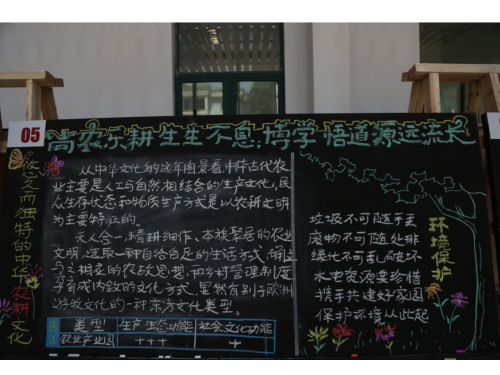 05
尚农乐耕生生不息;博学悟道源远流长
悠久而独特的中华农耕文化
从中华文化的
景看,中华古代农
业主要是人工与自然相结合的生产文化,民
众生存状态和物质生产方式是以农耕文明
为主要特征的。
天人合一,精耕细作、本族聚居的农业
文明,选取一种自给自足的生活方式,确立
与之相宜的农政思想,和乡村管理制度
孕育成内敛的文化方式,显然有别于欧洲
游牧文化的一种东方文化类型。
类型 生产生态功能 社会文化功能
农业产业园 +++ +
环境保护
垃圾不可随手丢
废物不可随处排
绿化不可乱破坏
水电资源要珍惜
携手共建好家园
保护环境从此起